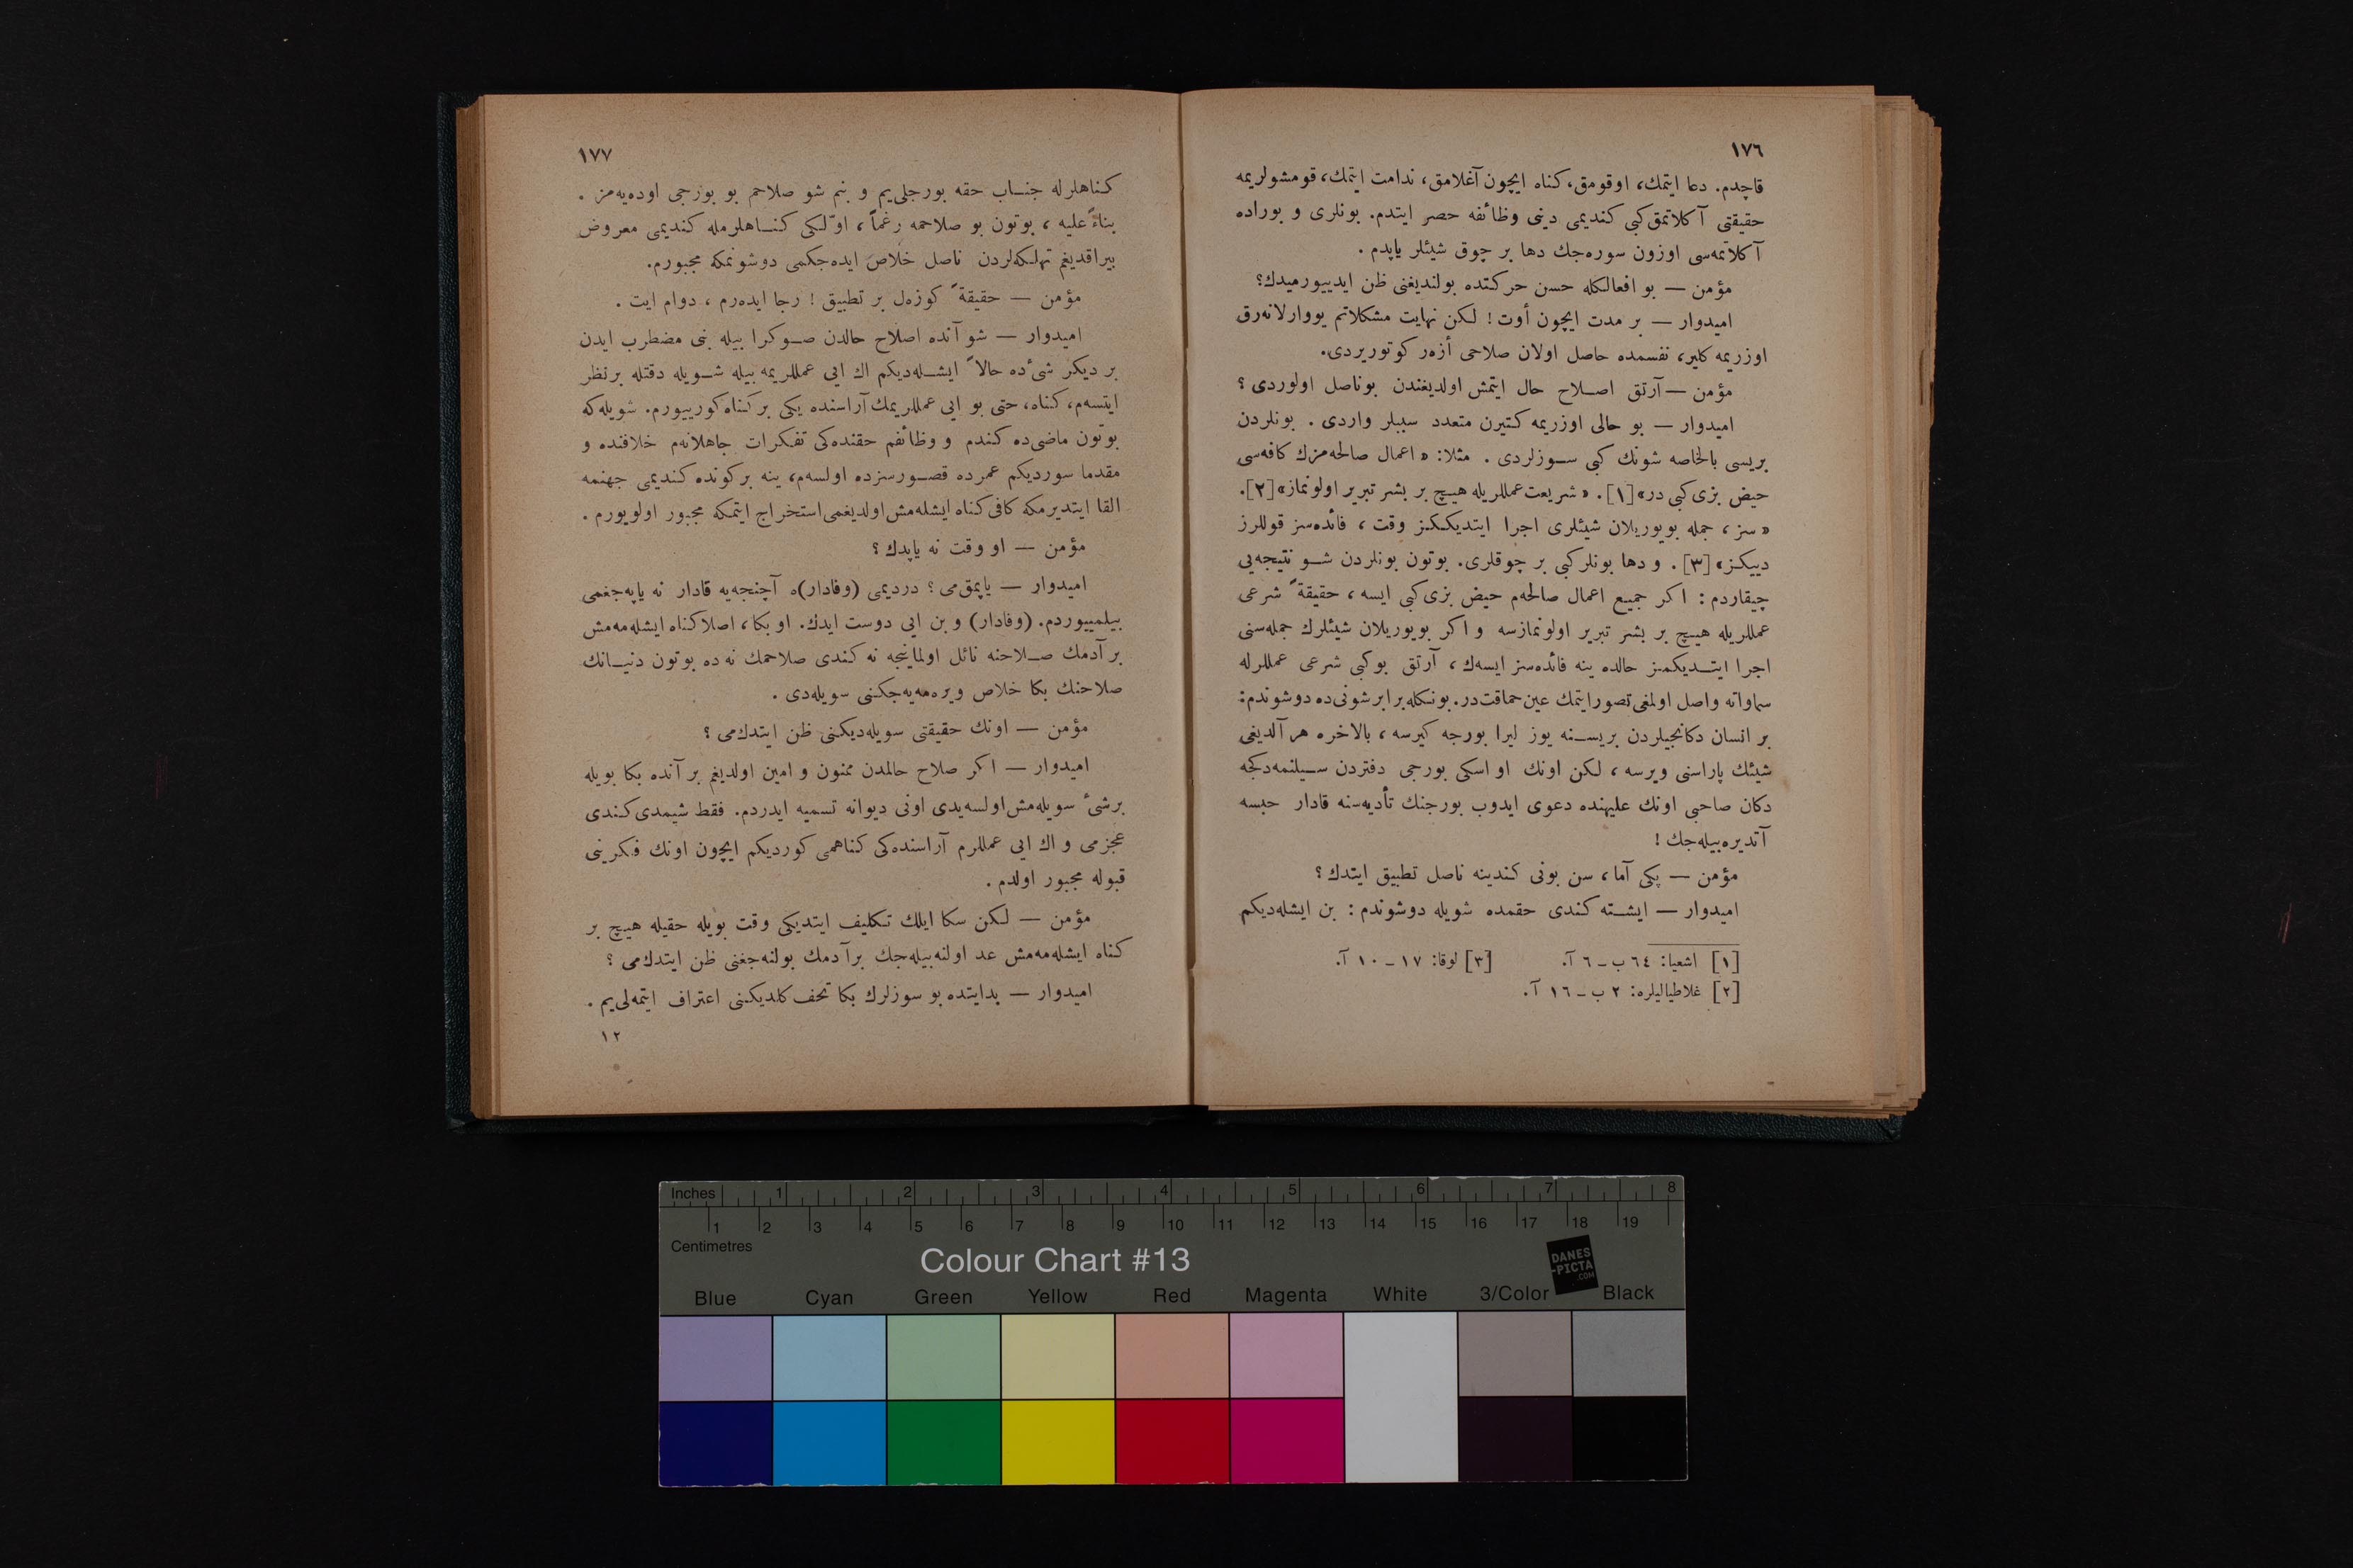 ١٧٦
قاچدم. دعا ایتمك، اوقومق، كناه ایچون آغلامق، ندامت ایتمك، قومشولریمه
حقیقتی آكلاتمق كبی كندیمی دینی وظائفه حصر ایتدم. بونلری و بوراده
آكلاتمه‌سی اوزون سوره‌جك دها بر چوق شیئلر یاپدم .
مؤمن — بو افعالكله حسن حركتده بولندیغنی ظن ایدییورمیدك؟
امیدوار — بر مدت ایچون أوت! لكن نهایت مشكلاتم یووارلانه‌رق
اوزریمه كلیر، نفسمده حاصل اولان صلاحی أزه‌ر كوتوریردی.
مؤمن — آرتق اصلاح حال ایتمش اولدیغندن بوناصل اولوردی ؟
امیدوار — بو حالی اوزریمه كتیرن متعدد سببلر واردی . بونلردن
بریسی بالخاصه شونك كبی سوزلردی . مثلا: «اعمال صالحه‌مزك كافه‌سی
حیض بزی كبی در» [١]. «شریعت عمللریله هیچ بر بشر تبریر اولونماز» [٢].
«سز ، جمله بویوریلان شیئلری اجرا ایتدیككز وقت ، فائده‌سز قوللرز
دییكز» [٣] . و دها بونلر كبی بر چوقلری. بوتون بونلردن شو نتیجه‌یی
چیقاردم : اكر جمیع اعمال صالحه‌م حیض بزی كبی ایسه ، حقیقةً شرعی
عمللریله هیچ بر بشر تبریر اولونمازسه و اكر بویوریلان شیئلرك جمله‌سنی
اجرا ایتدیكمز حالده ینه فائده‌سز ایسه‌ك ، آرتق بو كبی شرعی عمللرله
سماواته واصل اولمغی تصور ایتمك عین حماقت در. بونكله برابر شونی ده دوشوندم:
بر انسان دكانجیلردن بریسنه یوز لیرا بورجه كیرسه ، بالاخره هر آلدیغی
شیئك پاراسنی ویرسه ، لكن اونك او اسكی بورجی دفتردن سیلنمه‌دكجه
دكان صاحبی اونك علیهنده دعوی ایدوب بورجنك تأدیه‌سنه قادار حبسه
آتدیره‌بیله‌جك !
مؤمن — پكی آما ، سن بونی كندینه ناصل تطبیق ایتدك ؟
امیدوار — ایشته كندی حقمده شویله دوشوندم : بن ایشله‌دیكم
[١] اشعیا: ٦٤ ب ـ ٦ آ. [٣] لوقا: ١٧ ـ ١٠ آ.
[٢] غلاطیالیلره: ٢ ب ـ ١٦ آ.
١٧٧
كناهلرله جناب حقه بورجلی‌یم و بنم شو صلاحم بو بورجی اوده‌یه‌مز .
بناءً علیه ، بوتون بو صلاحمه رغماً ، اوّلكی كناهلرمله كندیمی معروض
بیراقدیغم تهلكه‌لردن ناصل خلاص ایده‌جكمی دوشونمكه مجبورم.
مؤمن — حقیقةً كوزه‌ل بر تطبیق ! رجا ایده‌رم ، دوام ایت .
امیدوار — شو آنده اصلاح حالدن صوكرا بیله بنی مضطرب ایدن
بر دیكر شی‌ٔ ده حالاً ایشله‌دیكم اك ایی عمللریمه بیله شویله دقتله بر نظر
ایتسه‌م، كناه، حتی بو ایی عمللریمك آراسنده یكی بر كناه كورییورم. شویله كه
بوتون ماضی ده كندم و وظائفم حقنده كی تفكرات جاهلانه‌م خلافنده و
مقدما سوردیكم عمرده قصورسزده اولسه‌م، ینه بر كونده كندیمی جهنمه
القا ایتدیرمكه كافی كناه ایشله‌مش اولدیغمی استخراج ایتمكه مجبور اولویورم .
مؤمن — او وقت نه یاپدك ؟
امیدوار — یاپمق می ؟ دردیمی (وفادار)ه آچنجه‌یه قادار نه یاپه‌جغمی
بیلمییوردم. (وفادار) و بن ایی دوست ایدك. او بكا، اصلا كناه ایشله‌مه‌مش
بر آدمك صلاحنه نائل اولماینجه نه كندی صلاحمك نه ده بوتون دنیانك
صلاحنك بكا خلاص ویره‌مه‌یه‌جكنی سویله‌دی .
مؤمن — اونك حقیقتی سویله‌دیكنی ظن ایتدك می ؟
امیدوار — اكر صلاح حالمدن ممنون و امین اولدیغم بر آنده بكا بویله
بر شی‌ٔ سویله‌مش اولسه‌یدی اونی دیوانه تسمیه ایدردم. فقط شیمدی كندی
عجزمی و اك ایی عمللرم آراسنده كی كناهمی كوردیكم ایچون اونك فكرینی
قبوله مجبور اولدم .
مؤمن — لكن سكا ایلك تكلیف ایتدیكی وقت بویله حقیله هیچ بر
كناه ایشله‌مه‌مش عد اولنه‌بیله‌جك بر آدمك بولنه‌جغنی ظن ایتدك می ؟
امیدوار — بدایتده بو سوزلرك بكا تحف كلدیكنی اعتراف ایتمه‌لی‌یم .
١٢
Inches 1 2 3 4 5 6 7 8
1 2 3 4 5 6 7 8 9 10 11 12 13 14 15 16 17 18 19
Centimetres
Colour Chart #13
DANES
-PICTA
.COM
Blue Cyan Green Yellow Red Magenta White 3/Color Black